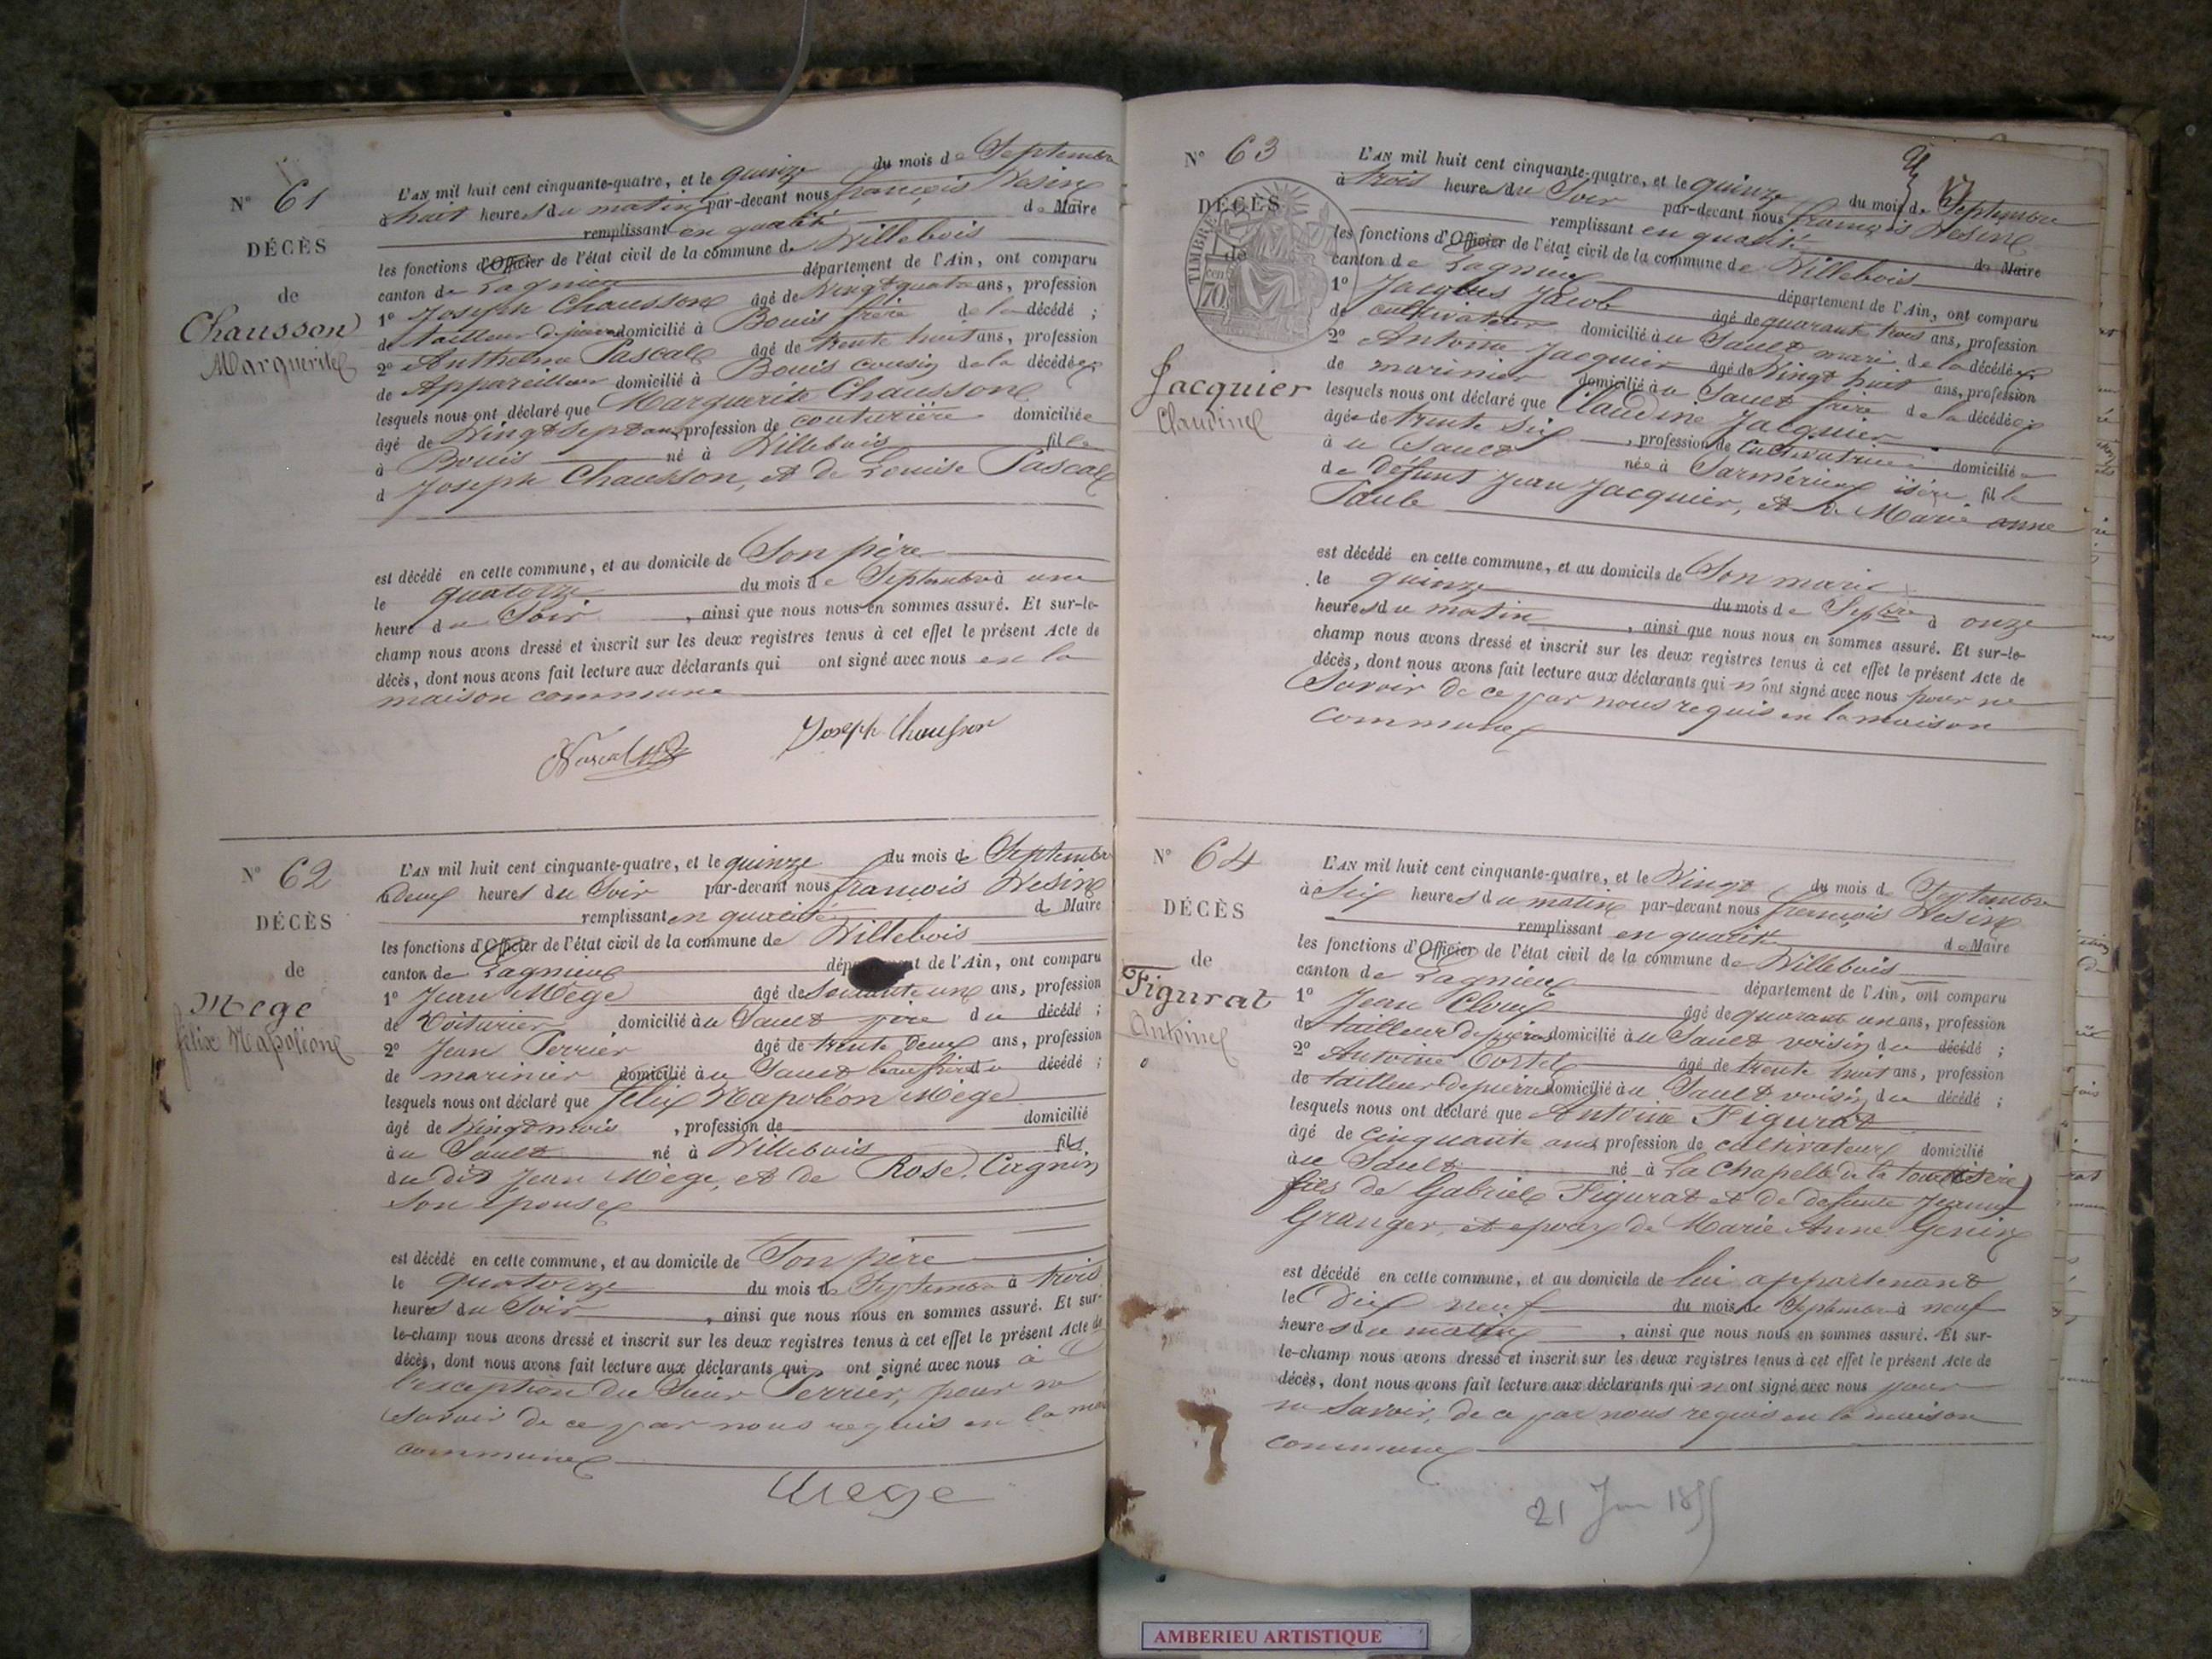 N° 61
DÉCÈS
de
Chausson
Marguerite
L'AN mil huit cent cinquante-quatre, et le quinze du mois de Septembre
à huit heures du matin par-devant nous françois
remplissant en qualité de Maire
les fonctions d'Officier de l'état civil de la commune de Villebois
canton de Lagnieu département de l'Ain, ont comparu
1° Joseph Chausson âgé de Vingt quatre ans, profession
de tailleur de pierres domicilié à Bouis frère de la décédé ;
2° Anthelme Pascal âgé de trente huit ans, profession
de Appareilleur domicilié à Bouis cousin de la décédée
lesquels nous ont déclaré que Marguerite Chausson
âgé de Vingt Sept ans, profession de couturière domiciliée
à Bouis né à Villebois fille
d Joseph Chausson, et de Louise Pascal
est décédé en cette commune, et au domicile de Son père
le quatorze du mois de Septembre à une
heure du Soir , ainsi que nous nous en sommes assuré. Et sur-le-
champ nous avons dressé et inscrit sur les deux registres tenus à cet effet le présent Acte de
décès, dont nous avons fait lecture aux déclarants qui ont signé avec nous en la
maison commune
Joseph Chausson
N° 62
DÉCÈS
de
Mege
félix Napoléon
L'AN mil huit cent cinquante-quatre, et le quinze du mois de Septembre
à deux heures du Soir par-devant nous françois
remplissant en qualité de Maire
les fonctions d'Officier de l'état civil de la commune de Villebois
canton de Lagnieu département de l'Ain, ont comparu
1° Jean Mège âgé de Soixante un ans, profession
de Voiturier domicilié au Sault père du décédé ;
2° Jean Perrier âgé de trente Deux ans, profession
de marinier domicilié au Sault beau frère du décédé ;
lesquels nous ont déclaré que félix Napoléon Mège
âgé de Vingt mois , profession de domicilié
au Sault né à Villebois fils
du dit Jean Mège, et de Rose
Son épouse
est décédé en cette commune, et au domicile de Son père
le quatorze du mois de Septembre à trois
heures du Soir , ainsi que nous nous en sommes assuré. Et sur-
le-champ nous avons dressé et inscrit sur les deux registres tenus à cet effet le présent Acte de
décès, dont nous avons fait lecture aux déclarants qui ont signé avec nous à
l'exception du Sieur Perrier, pour ne
Savoir de ce par nous requis en la
commune
Mege
N° 63
DÉCÈS
de
TIMBRE
70
Jacquier
Claudine
L'AN mil huit cent cinquante-quatre, et le quinze du mois de Septembre
à trois heures du Soir par-devant nous françois
remplissant en qualité de Maire
les fonctions d'Officier de l'état civil de la commune de Villebois
canton de Lagnieu département de l'Ain, ont comparu
1° Jacques Jacob âgé de quarante trois ans, profession
de cultivateur domicilié au Sault mari de la décédée
2° Antoine Jacquier âgé de Vingt huit ans, profession
de marinier domicilié au Sault frère de la décédée
lesquels nous ont déclaré que Claudine Jacquier
âgée de trente Six , profession de Cultivatrice domiciliée
à u Sault née à Sarmérieux isère fille
de Défunt Jean Jacquier, et de Marie anne
Paule
est décédé en cette commune, et au domicile de Son mari
le quinze du mois de Septbre à onze
heures du matin , ainsi que nous nous en sommes assuré. Et sur-le-
champ nous avons dressé et inscrit sur les deux registres tenus à cet effet le présent Acte de
décès, dont nous avons fait lecture aux déclarants qui n'ont signé avec nous pour ne
Savoir de ce par nous requis en la maison
commune
N° 64
DÉCÈS
de
Figurat
Antoine
L'AN mil huit cent cinquante-quatre, et le Vingt du mois de Septembre
à Six heures du matin par-devant nous françois
remplissant en qualité de Maire
les fonctions d'Officier de l'état civil de la commune de Villebois
canton de Lagnieu département de l'Ain, ont comparu
1° Jean âgé de quarante un ans, profession
de tailleur de pierres domicilié au Sault voisin du décédé ;
2° Antoine âgé de trente huit ans, profession
de tailleur de pierres domicilié au Sault voisin du décédé ;
lesquels nous ont déclaré que Antoine Figurat
âgé de cinquante ans, profession de cultivateur domicilié
au Sault né à La Chapelle de la tour (isère)
fils de Gabriel Figurat et de defunte Jeanne
Granger, et epoux de Marie Anne Genin
est décédé en cette commune, et au domicile de lui appartenant
le Dix neuf du mois de Septembre à neuf
heures du matin , ainsi que nous nous en sommes assuré. Et sur-
le-champ nous avons dressé et inscrit sur les deux registres tenus à cet effet le présent Acte de
décès, dont nous avons fait lecture aux déclarants qui n ont signé avec nous pour
ne Savoir, de ce par nous requis en la maison
commune
21 Jan 1855
AMBERIEU ARTISTIQUE